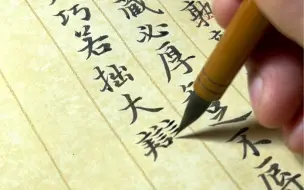 孰
藏必厚足不辱
巧若拙大辯